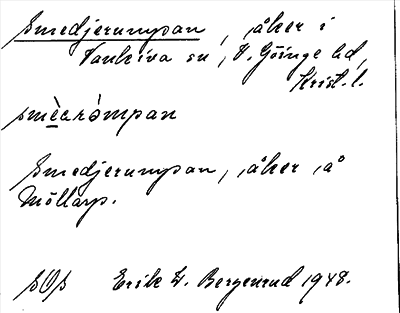 Smedjerumpan, åker i
Vankiva sn, V. Göinge hd,
Krist. l.
smècrómpan
Smedjerumpan, åker, å
Möllarp.
SOS Erik W. Bergenrud 1948.